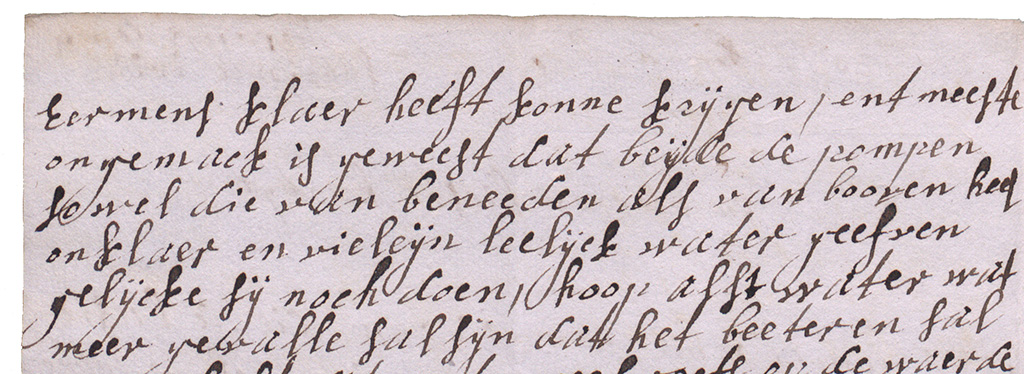 eermens klaer heeft konne krijgen, ent meeste
ongemack is geweest dat beijde de pompen
sowel die van beneeden als van booven heel
onklaer en vieleijn leelijck water geefven
gelijcke sij noch doen, hoop alst water wat
meer gevalle sal sijn dat het beeteren sal
op de waerde